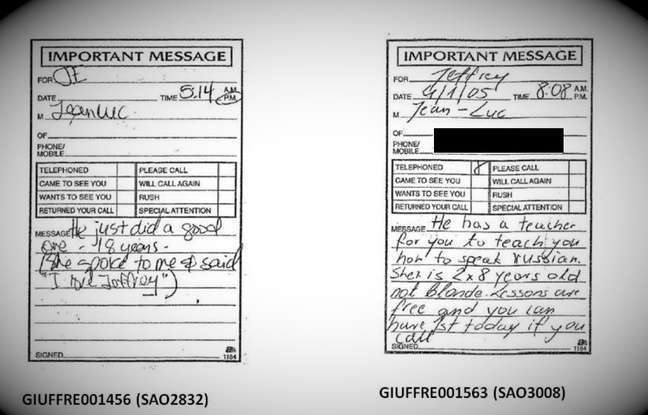 IMPORTANT MESSAGE
FOR JE
DATE TIME 5:14 A.M. P.M.
M Jean Luc
OF
PHONE/
MOBILE
TELEPHONED PLEASE CALL
CAME TO SEE YOU WILL CALL AGAIN
WANTS TO SEE YOU RUSH
RETURNED YOUR CALL SPECIAL ATTENTION
MESSAGE He just did a good
one - 18 years -
(She spoke to me & said
"I love Jeffrey")
SIGNED
1184
GIUFFRE001456 (SAO2832)
IMPORTANT MESSAGE
FOR Jeffrey
DATE /1/05 TIME 8:08 A.M. P.M.
M Jean-Luc
OF
PHONE/
MOBILE
TELEPHONED PLEASE CALL
CAME TO SEE YOU WILL CALL AGAIN
WANTS TO SEE YOU RUSH
RETURNED YOUR CALL SPECIAL ATTENTION
MESSAGE He has a teacher
for you to teach you
how to speak russian.
She is 2x8 years old
not blonde. Lessons are
free and you can
have 1st today if you
call
SIGNED
1184
GIUFFRE001563 (SAO3008)